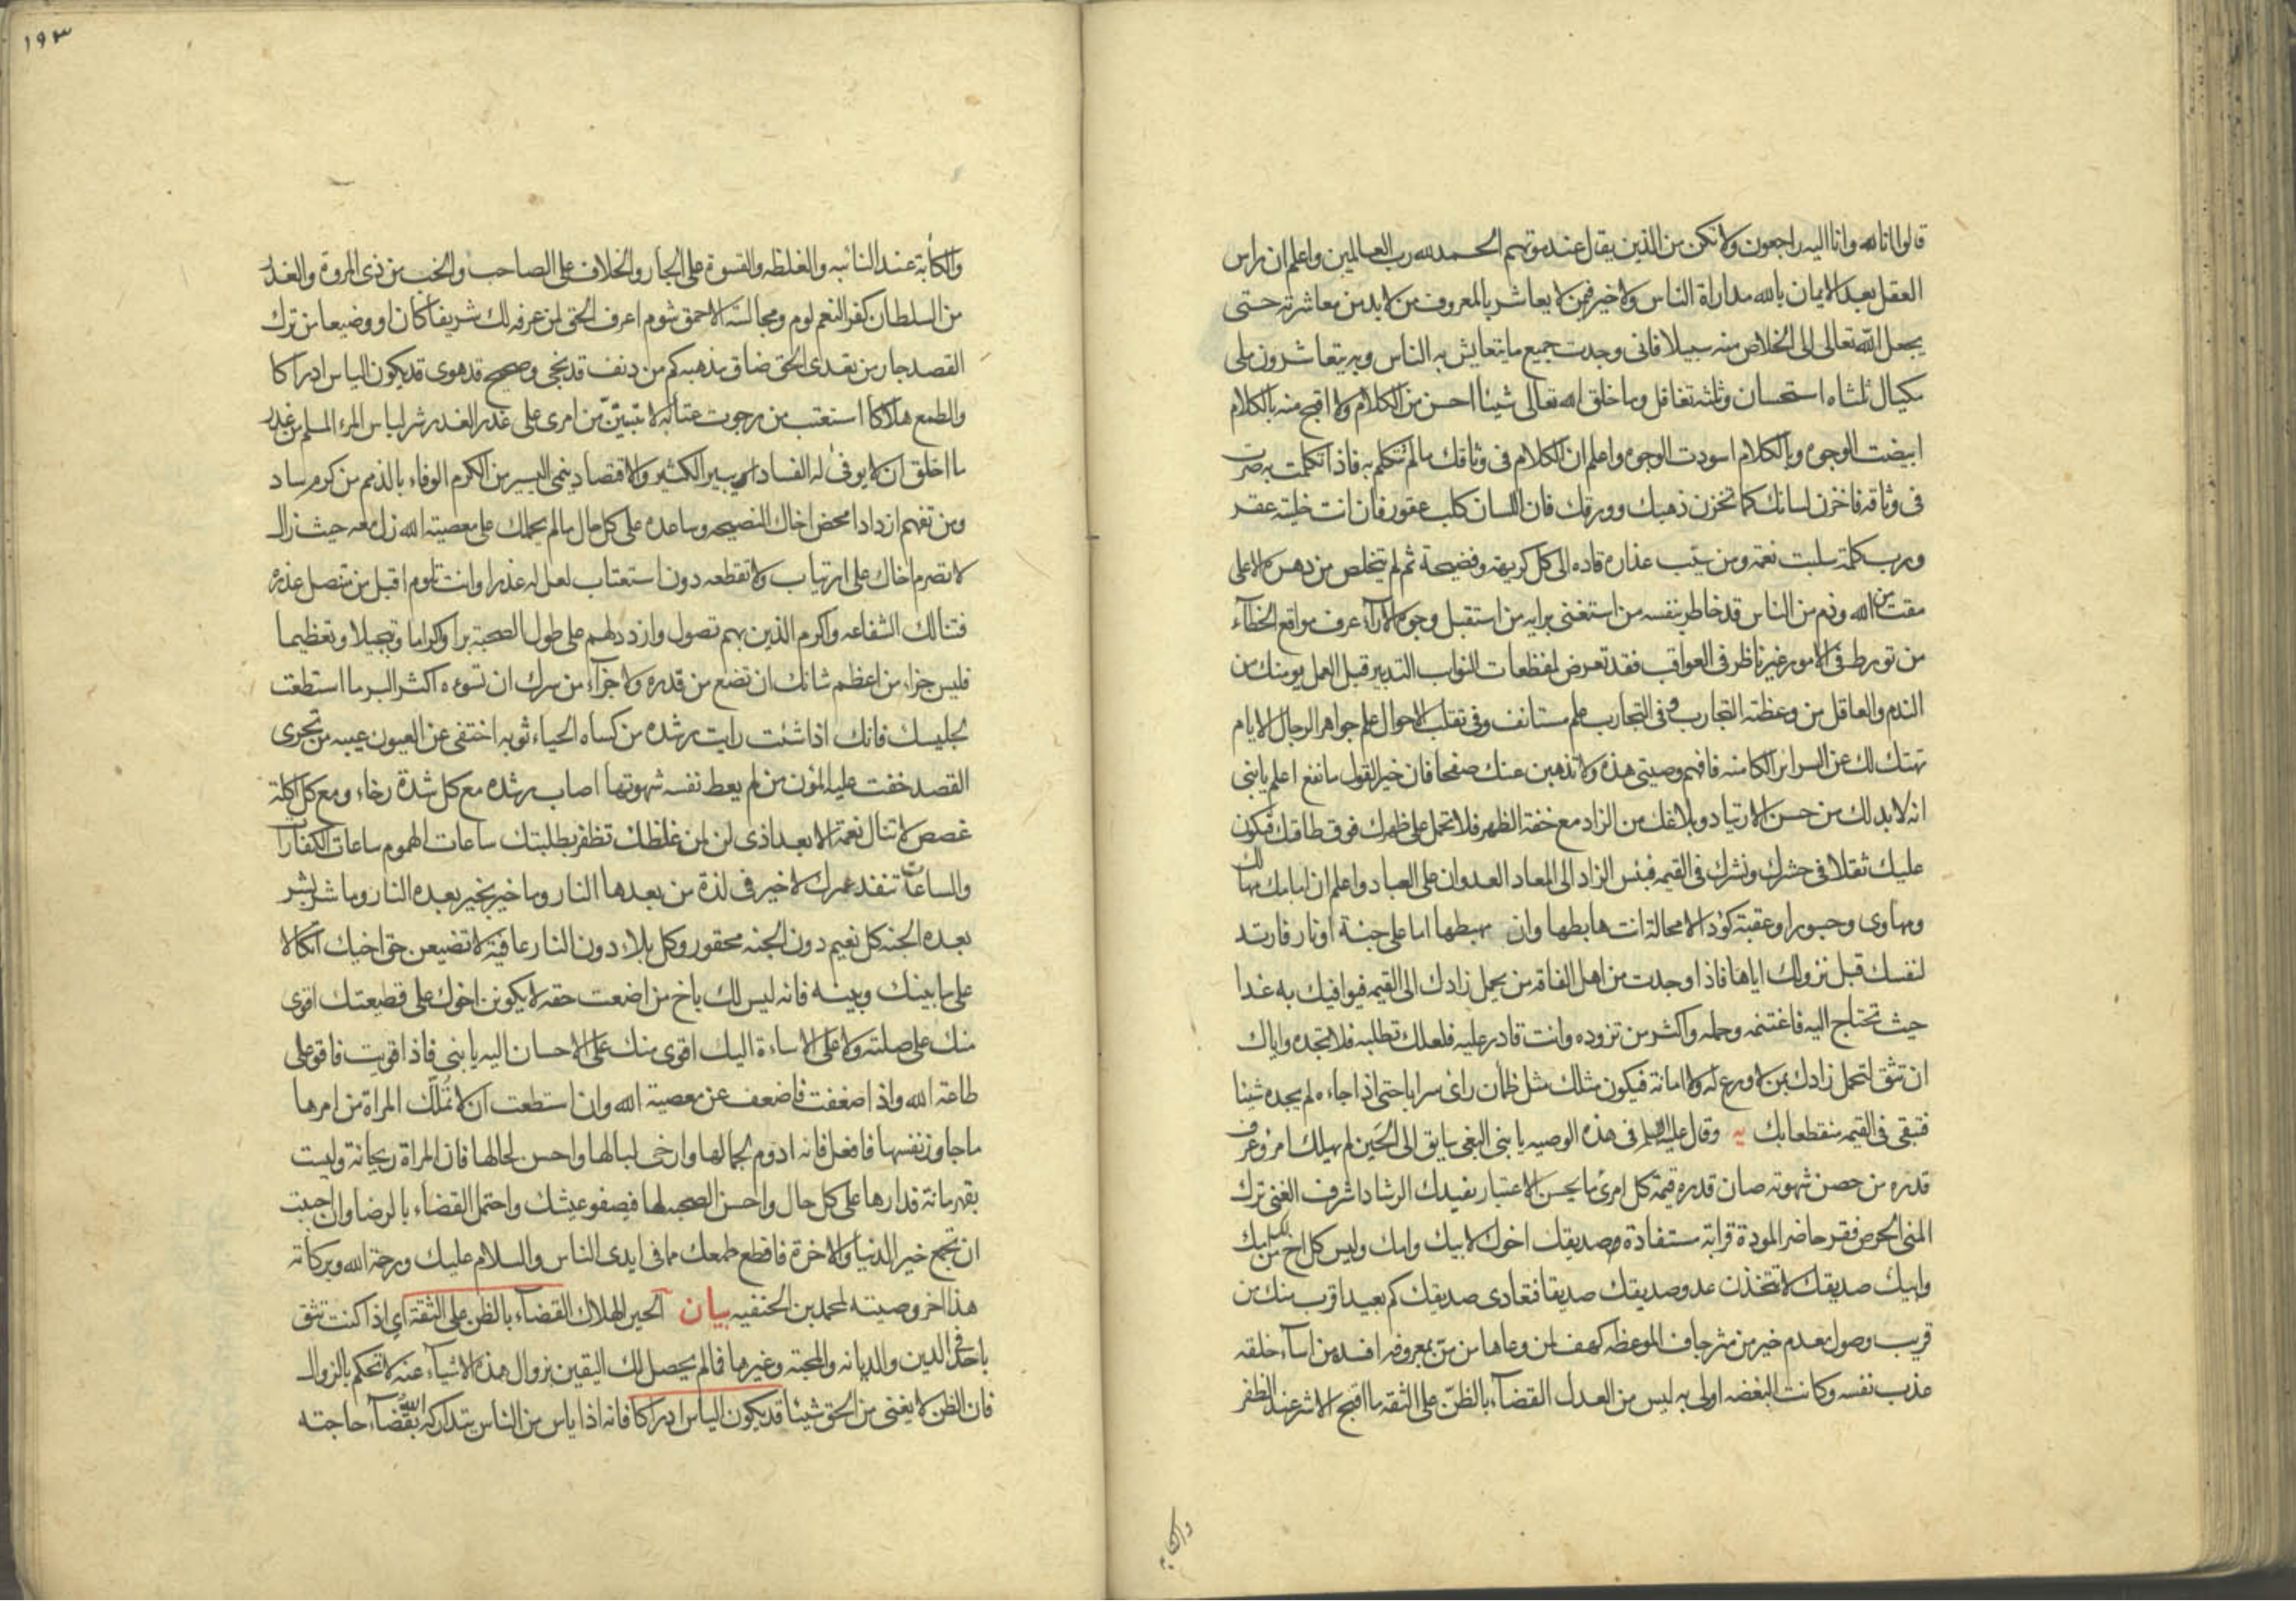 قالوا انا لله وانا اليه راجعون ولا تكن من الذين يقال عند موتهم الحمد لله رب العالمين واعلم ان راس
العقل بعد الايمان بالله مداراة الناس ولا خير فيمن لا يعاشر بالمعروف من لا بد من معاشرته حتى
يجعل الله تعالى الى الخلاص منه سبيلا فانى وجدت جميع ما يتعايش به الناس وبه يتعاشرون ملى
مكيال ثلثاه استحسان وثلثه تغافل وما خلق الله تعالى شيئا احسن من الكلام ولا اقبح منه بالكلام
ابيضت الوجوه وبالكلام اسودت الوجوه واعلم ان الكلام فى وثاقك ما لم تتكلم به فاذا تكلمت به صرت
فى وثاقه فاخزن لسانك كما تخزن ذهبك وورقك فان اللسان كلب عقور فان انت خليته عقر
ورب كلمة سلبت نعمة ومن سيب عذاره قاده الى كل كريهة وفضيحة ثم لم يتخلص من دهره الا على
مقت من الله وذم من الناس قد خاطر بنفسه من استغنى برايه من استقبل وجوه الارآء عرف مواقع الخطآء
من تورط فى الامور غير ناظر فى العواقب فقد تعرض لمفظعات النوايب التدبير قبل العمل يومنك من
الندم والعاقل من وعظته التجارب وفى التجارب علم مستانف وفى تقلب الاحوال علم جواهر الرجال الايام
تهتك لك عن السراير الكامنه فافهم وصيتى هذه ولا تذهبن عنك صفحا فان خير القول ما نفع اعلم يا بنى
انه لا بد لك من حسن الارتياد وبلاغك من الزاد مع خفة الظهر فلا تحمل على ظهرك فوق طاقتك فيكون
عليك ثقلا فى حشرك ونشرك فى القيمه فبئس الزاد الى المعاد العدوان على العباد واعلم ان امامك مهالك
ومهاوى وجسورا وعقبة كؤدا لا محالة انت هابطها وان مهبطها اما على جنة او نار فارتد
لنفسك قبل نزولك اياها فاذا وجدت من اهل الفاقة من يحمل زادك الى القيمه فيوافيك به غدا
حيث تحتاج اليه فاغتنمه وحمله واكثر من تزوده وانت قادر عليه فلعلك تطلبه فلا تجده واياك
ان تثق لتحمل زادك بمن لا ورع له ولا امانة فيكون مثلك مثل ظمأن رأى سرابا حتى اذا جاءه لم يجده شيئا
فتبقى فى القيمه منقطعا بك يه وقال عليه السلم فى هذه الوصيه يا بنى البغى سايق الى الحَين لم يهلك امرؤ عرف
قدره من حصن شهوته صان قدره قيمة كل امرئ ما يحسن الاعتبار يفيدك الرشاد اشرف الغنى ترك
المنى الحرص فقر حاضر المودة قرابة مستفادة صديقك اخوك لابيك وامك وليس كل اخ لك من ابيك
وامك صديقك لا تتخذن عدو صديقك صديقا فتعادى صديقك كم بعيد اقرب منك من
قريب وصول معدم خير من مثر جاف الموعظه كهف لمن وعاها من من بمعروفه افسده من اسآء خلقه
عذب نفسه وكانت البغضه اولى به ليس من العدل القضآء بالظنّ على الثقه ما اقبح الاشر عند الظفر
والكابه
١٩٣
والكأبة عند النائبه والغلظه والقسوة على الجار والخلاف على الصاحب والخب من ذى المروة والغدر
من السلطان كفر النعم لوم ومجالسة الاحمق شوم اعرف الحق لمن عرفه لك شريفا كان او وضيعا من ترك
القصد جار من تعدى الحق ضاق مذهبه كم من دنف قد نجى وصحيح قد هوى قد يكون الياس ادراكا
والطمع هلاكا استعتب من رجوت عتابه لا تبيتنّ من امرى على غدر الغدر شر لباس المرء المسلم من غدر
ما اخلق ان لا يوفى له الفساد يبير الكثير والاقتصاد ينمى اليسير من الكرم الوفاء بالذمم من كرم ساد
ومن تفهم ازداد امحض اخاك النصيحه وساعده على كل حال ما لم يحملك على معصية الله زل معه حيث زال
لا تصرم اخاك على ارتياب ولا تقطعه دون استعتاب لعل له عذرا وانت تلوم اقبل من متنصل عذره
فتنالك الشفاعه واكرم الذين بهم تصول وازدد لهم على طول الصحبة برا واكراما وتبجيلا وتعظيما
فليس جزاء من اعظم شانك ان تضع من قدره ولا جزآء من سرك ان تسوءه اكثر البر ما استطعت
لجليسك فانك اذا شئت رايت رشده من كساه الحياء ثوبه اختفى عن العيون عيبه من تحرى
القصد خفت عليه المؤن من لم يعط نفسه شهوتها اصاب رشده مع كل شدة رخاء ومع كل اكلة
غصص لا تنال نعمة الا بعد اذى لن لمن غلظك تظفر بطلبتك ساعات الهموم ساعات الكفارات
والساعات تنفد عمرك لا خير فى لذة من بعدها النار وما خير بخير بعده النار وما شر بشر
بعده الجنه كل نعيم دون الجنه محقور وكل بلاء دون النار عافية لا تضيعن حق اخيك اتكالا
على ما بينك وبينه فانه ليس لك باخ من اضعت حقه لا يكونن اخوك على قطيعتك اقوى
منك على صلته ولا على الاساءة اليك اقوى منك على الاحسان اليه يا بنى فاذا قويت فاقو على
طاعة الله واذا ضعفت فاضعف عن معصية الله وان استطعت ان لا تُملّك المراة من امرها
ما جاوز نفسها فافعل فانه ادوم لجمالها وارخى لبالها واحسن لحالها فان المراة ريحانة وليست
بقهرمانة فدارها على كل حال واحسن الصحبه لها فيصفو عيشك واحتمل القضاء بالرضا وان احببت
ان تجمع خير الدنيا والاخرة فاقطع طمعك مما فى ايدى الناس والسلام عليك ورحمة الله وبركاته
هذا اخر وصيته لمحمد بن الحنفيه بيان الحين الهلاك القضآء بالظن على الثقة اى اذا كنت تثق
باحد فى الدين والديانه والمحبة وغيرها فما لم يحصل لك اليقين بزوال هذه الاشيآء عنه لا تحكم بالزوال
فان الظن لا يغنى من الحق شيئا قد يكون الياس ادراكا فانه اذا ياس من الناس يتداركه الله بقضآء حاجته